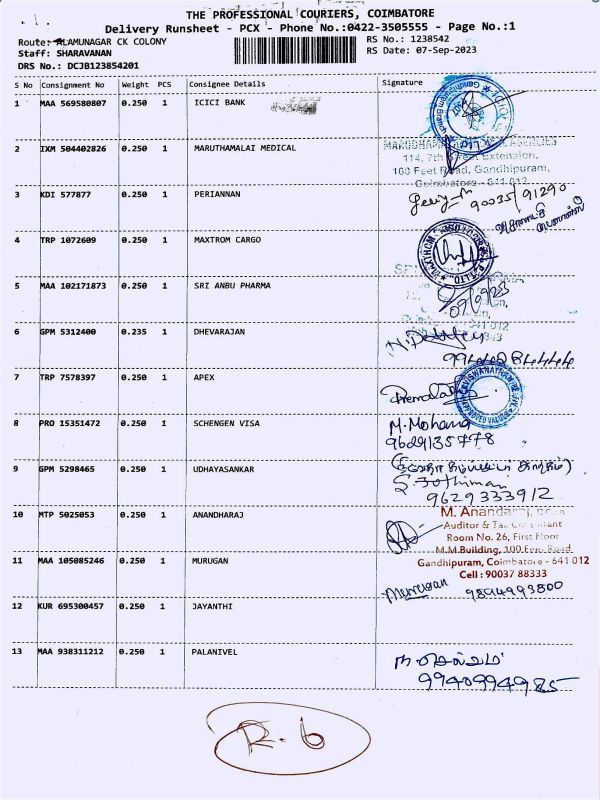 THE PROFESSIONAL COURIERS, COIMBATORE
Delivery Runsheet - PCX - Phone No.:0422-3505555 - Page No.:1
Route: ALAMUNAGAR CK COLONY
RS No.: 1238542
Staff: SHARAVANAN
RS Date: 07-Sep-2023
DRS No.: DCJB123854201
S No Consignment No Weight PCS Consignee Details Signature
1 MAA 569580807 0.250 1 ICICI BANK
2 IXM 504402826 0.250 1 MARUTHAMALAI MEDICAL
AGENCIES
114, 7th Street Extension,
100 Feet Road, Gandhipuram,
Coimbatore - 641 012
3 KDI 577877 0.250 1 PERIANNAN
90035/91290
4 TRP 1072609 0.250 1 MAXTROM CARGO
5 MAA 102171873 0.250 1 SRI ANBU PHARMA
6 GPM 5312400 0.235 1 DHEVARAJAN
7 TRP 7578397 0.250 1 APEX
8 PRO 15351472 0.250 1 SCHENGEN VISA
M. Mohana
9629135778
9 GPM 5298465 0.250 1 UDHAYASANKAR
S. Jothimani
9629333912
10 MTP 5025053 0.250 1 ANANDHARAJ
M. Anandaraj,
Auditor & Tax Consultant
Room No. 26, First Floor
M.M.Building, 100 Feet Road
Gandhipuram, Coimbatore - 641 012
Cell : 90037 88333
11 MAA 105085246 0.250 1 MURUGAN
Murugan 9894993800
12 KUR 695300457 0.250 1 JAYANTHI
13 MAA 938311212 0.250 1 PALANIVEL
9940994985
R-6